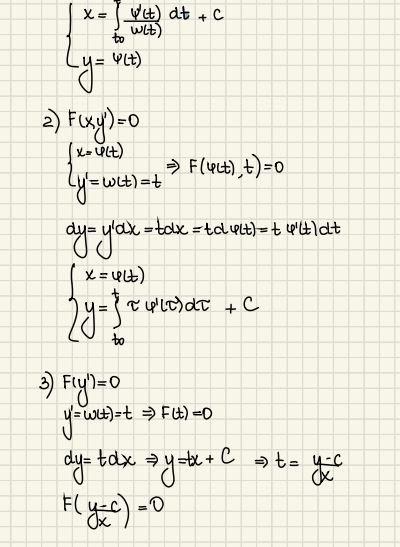 { x = ∫_{t₀}^{t} φ'(t)/ω(t) dt + C
y = φ(t)
2) F(x,y')=0
{ x=φ(t)
y'=ω(t)=t ⇒ F(φ(t),t)=0
dy= y'dx =tdx =tdφ(t)= t φ'(t)dt
{ x = φ(t)
y= ∫_{t₀}^{t} τ φ'(τ)dτ + C
3) F(y')=0
y'=ω(t)=t ⇒ F(t)=0
dy= tdx ⇒ y=tx + C ⇒ t = (y-c)/x
F((y-c)/x) =0